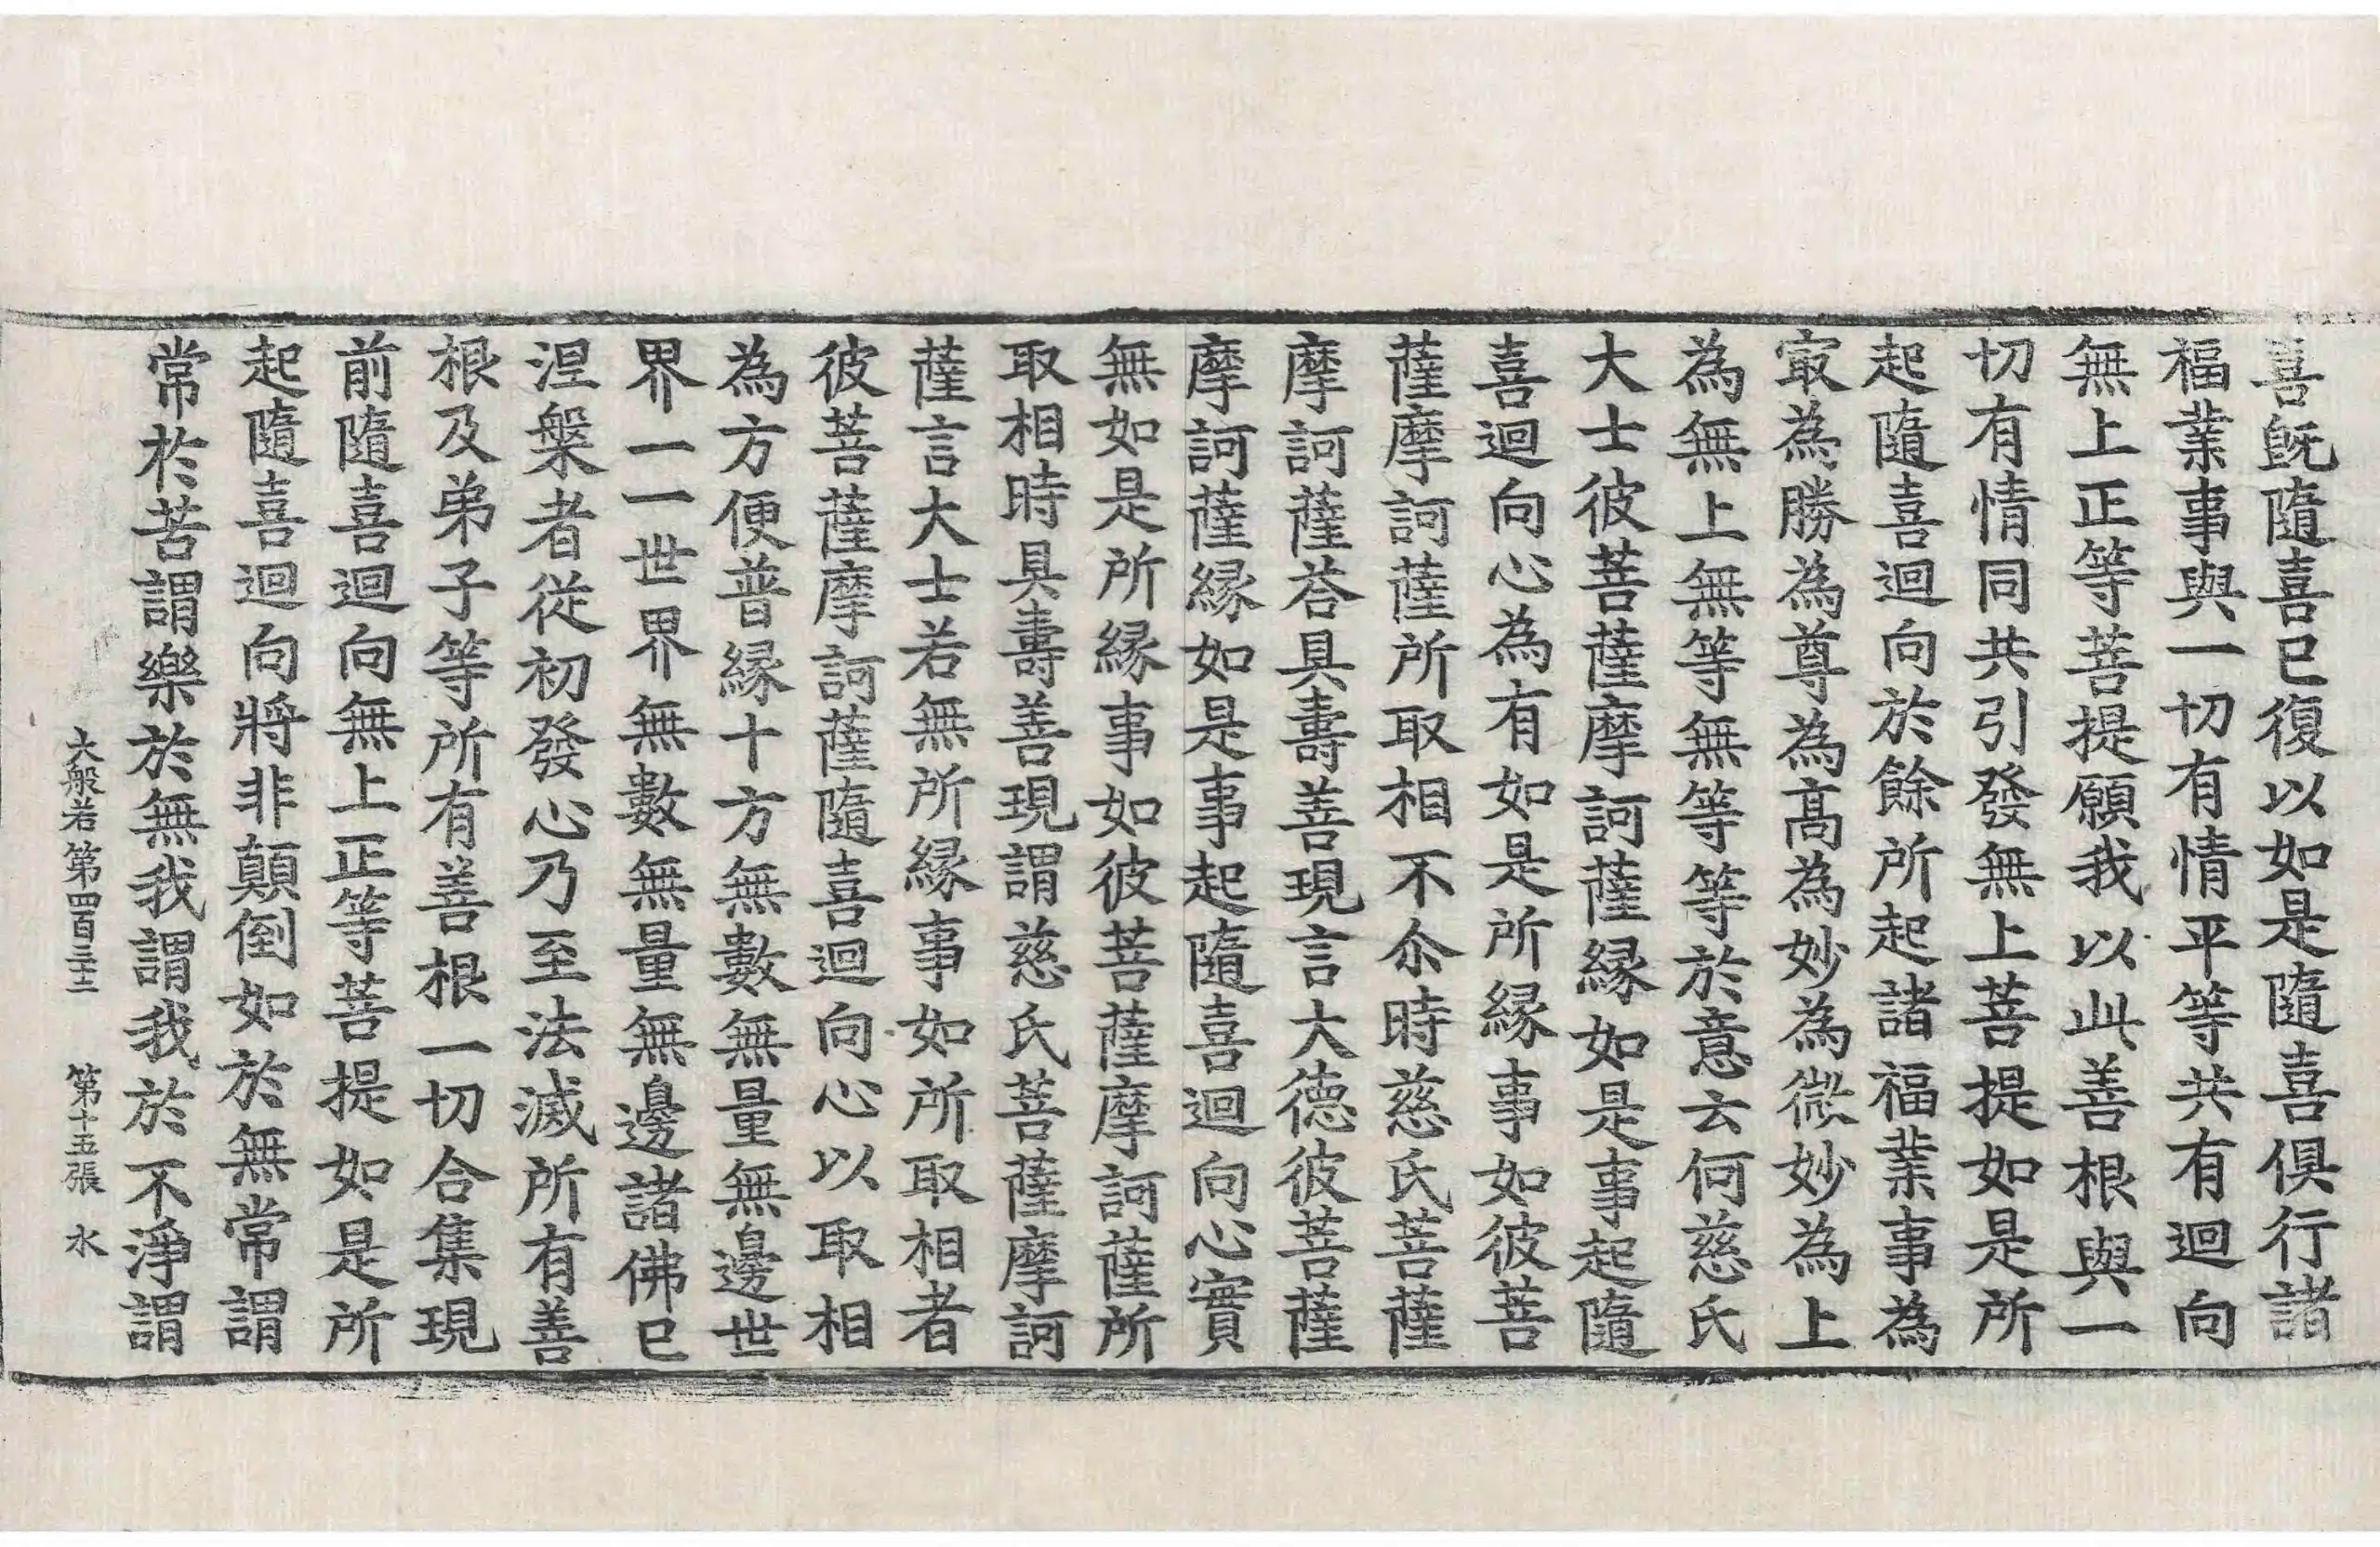 喜既隨喜已復以如是隨喜俱行諸
福業事與一切有情平等共有迴向
無上正等菩提願我以此善根與一
切有情同共引發無上菩提如是所
起隨喜迴向於餘所起諸福業事為
㝡為勝為尊為高為妙為微妙為上
為無上無等無等等於意云何慈氏
大士彼菩薩摩訶薩緣如是事起隨
喜迴向心為有如是所緣事如彼菩
薩摩訶薩所取相不尒時慈氏菩薩
摩訶薩荅具壽善現言大德彼菩薩
摩訶薩緣如是事起隨喜迴向心實
無如是所緣事如彼菩薩摩訶薩所
取相時具壽善現謂慈氏菩薩摩訶
薩言大士若無所緣事如所取相者
彼菩薩摩訶薩隨喜迴向心以取相
為方便普緣十方無數無量無邊世
界一一世界無數無量無邊諸佛已
涅槃者從初發心乃至法滅所有善
根及弟子等所有善根一切合集現
前隨喜迴向無上正等菩提如是所
起隨喜迴向將非顛倒如於無常謂
常於苦謂樂於無我謂我於不淨謂
大般若第四百三十二 第十五張 水